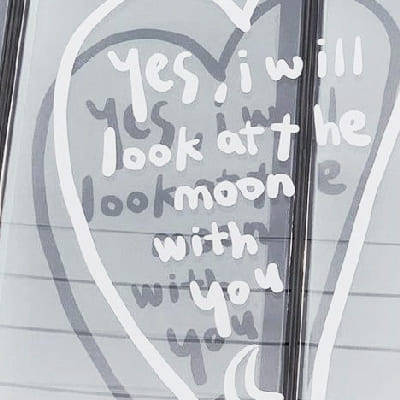 yes, i will
look at the
moon
with
you